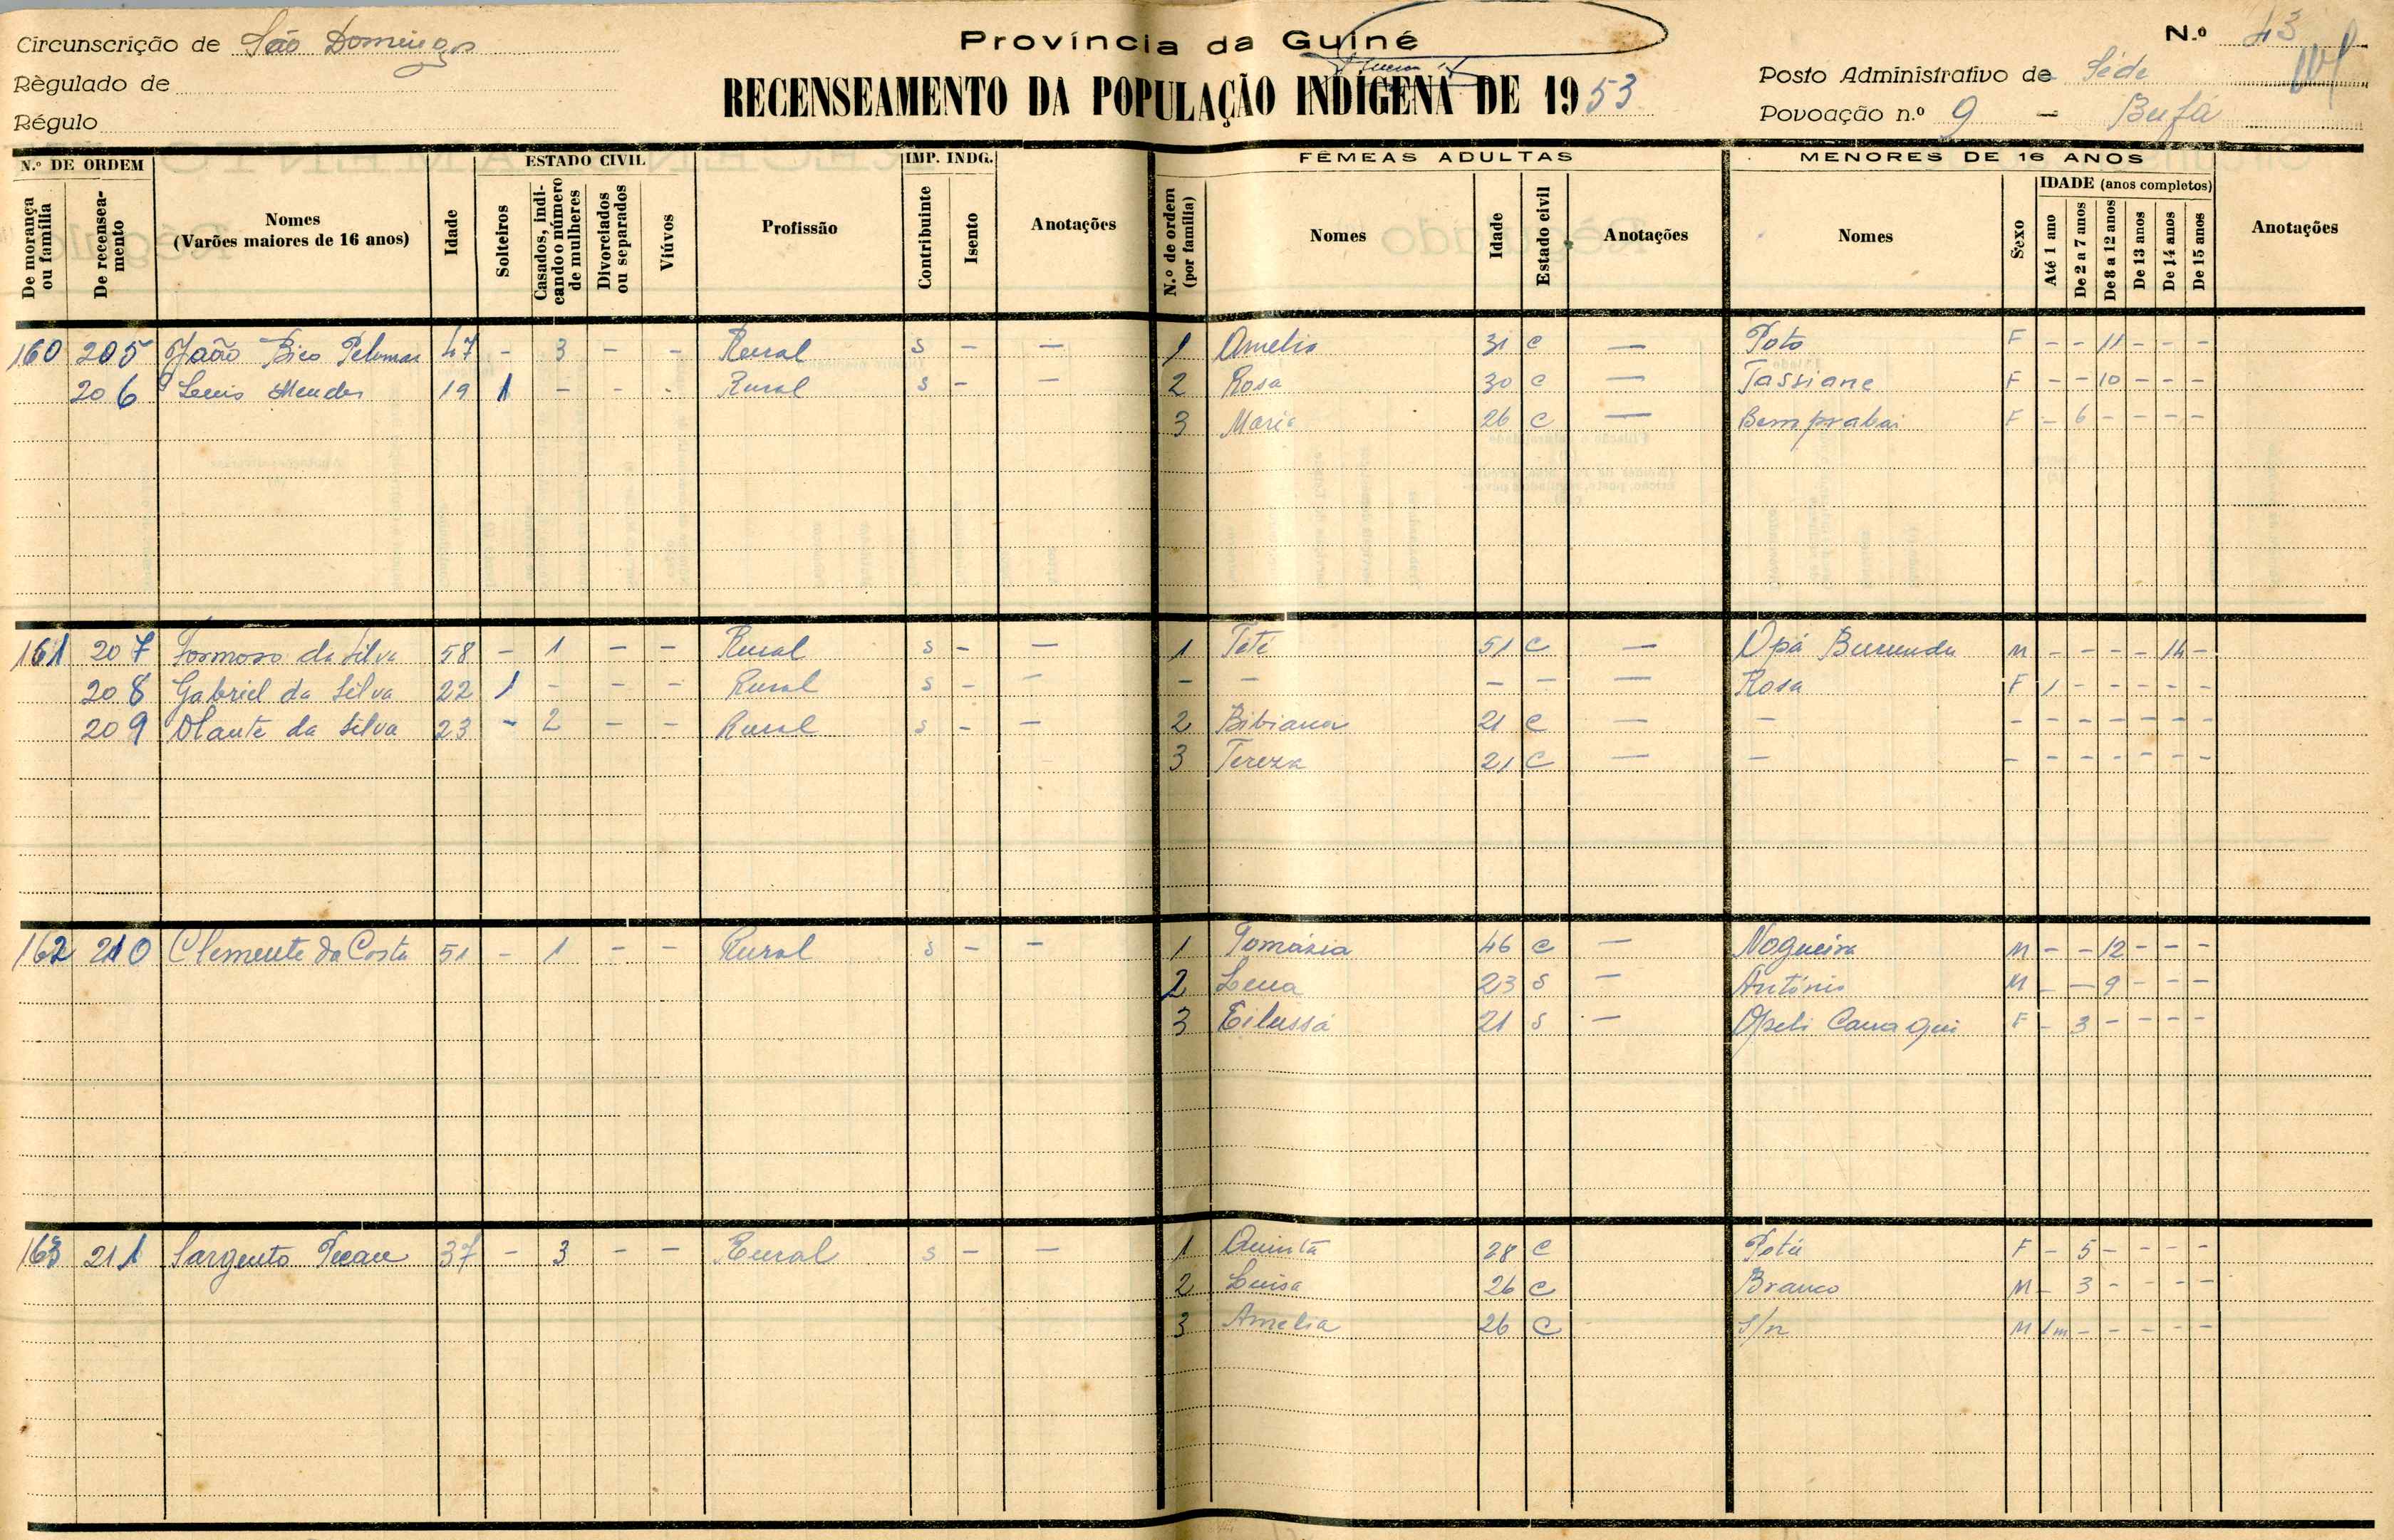 Circunscrição de São Domingos
Règulado de
Régulo
Província da Guiné
RECENSEAMENTO DA POPULAÇÃO INDÍGENA DE 1953
N.º 43
Posto Administrativo de Séde
Povoação n.º 9 - Bufa
N.º DE ORDEM
De morança ou família
De recenseamento
Nomes
(Varões maiores de 16 anos)
Idade
ESTADO CIVIL
Solteiros
Casados, indicando o número de mulheres
Divorciados ou separados
Viúvos
Profissão
IMP. INDG.
Contribuinte
Isento
Anotações
FÊMEAS ADULTAS
N.º de ordem (por família)
Nomes
Idade
Estado civil
Anotações
MENORES DE 16 ANOS
Nomes
Sexo
IDADE (anos completos)
Até 1 ano
De 2 a 7 anos
De 8 a 12 anos
De 13 anos
De 14 anos
De 15 anos
Anotações
160 205 João Bico 47 - 3 - - Rural S - - 1 Amelia 31 C - Poto F - - 11 - - -
206 Luis Mendes 19 1 - - - Rural S - - 2 Rosa 30 C - Tassiane F - - 10 - - -
3 Maria 26 C - Bemprabai F - 6 - - - -
161 207 Formoso da Silva 58 - 1 - - Rural S - - 1 Teté 51 C - Opá M - - - - 14 -
208 Gabriel da Silva 22 1 - - - Rural S - - - - - - - Rosa F 1 - - - - -
209 da Silva 23 - 2 - - Rural S - - 2 Bibiana 21 C - - - - - - - - -
3 Tereza 21 C - - - - - - - - -
162 210 Clemente da Costa 51 - 1 - - Rural S - - 1 Tomázia 46 C - Nogueira M - - 12 - - -
2 Lena 23 S - António M - - 9 - - -
3 21 S - F - 3 - - - -
163 211 Sargento 37 - 3 - - Rural S - - 1 Quinta 28 C Potú F - 5 - - - -
2 Luisa 26 C Branco M - 3 - - - -
3 Amelia 26 C S/n M 1m - - - - -